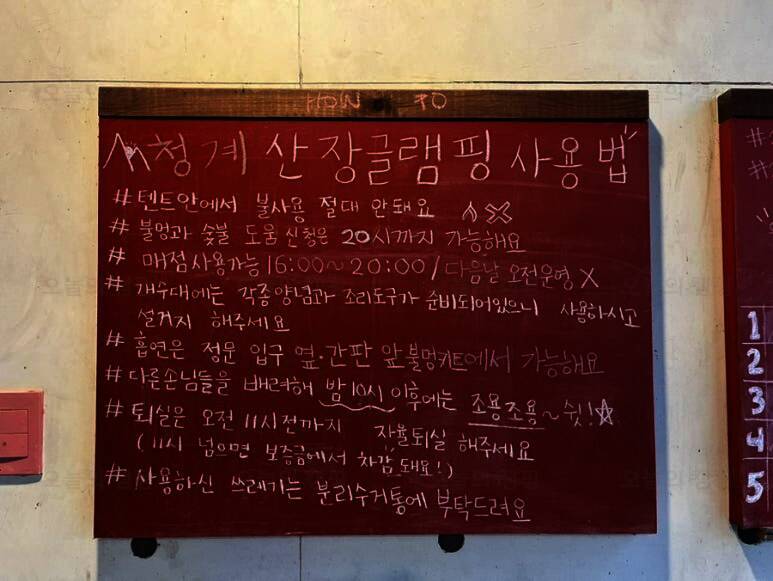 HOW TO
청계산장글램핑 사용법
# 텐트안에서 불사용 절대 안돼요
# 불멍과 숯불 도움 신청은 20시까지 가능해요
# 매점사용가능 16:00~20:00/다음날 오전운영 X
# 개수대에는 각종양념과 조리도구가 준비되어있으니 사용하시고
설거지 해주세요
# 흡연은 정문 입구 옆·간판 앞 불멍키트에서 가능해요
# 다른손님들을 배려해 밤 10시 이후에는 조용조용~쉿!☆
# 퇴실은 오전 11시전까지 자율퇴실 해주세요
(11시 넘으면 보증금에서 차감 돼요!)
# 사용하신 쓰레기는 분리수거통에 부탁드려요
#
#
1
2
3
4
5